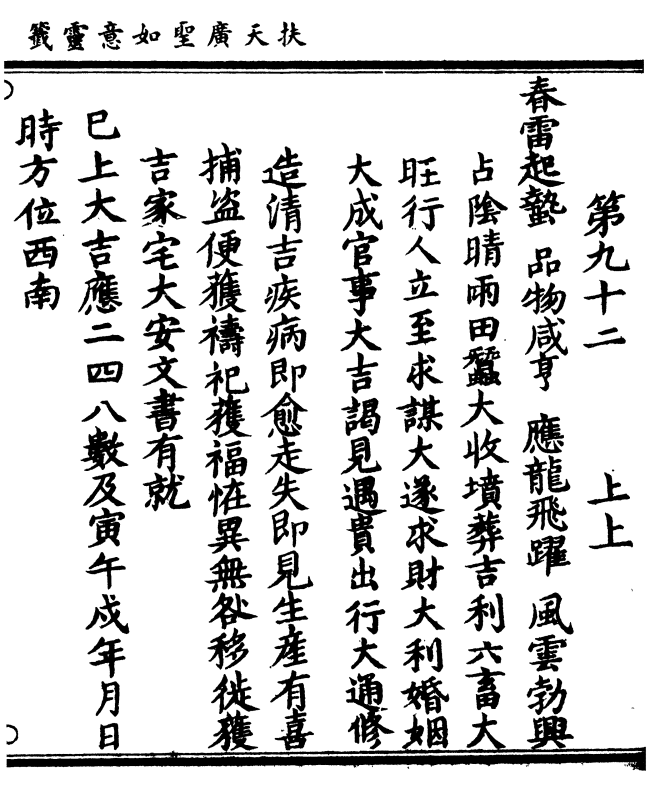 籤靈意如聖廣天扶
第九十二　上上
春雷起蟄　品物咸亨　應龍飛躍　風雲勃興
占陰晴雨田蠶大收墳葬吉利六畜大
旺行人立至求謀大遂求財大利婚姻
大成官事大吉謁見遇貴出行大通修
造清吉疾病即愈走失即見生產有喜
捕盜便獲禱祀獲福恠異無咎移徙獲
吉家宅大安文書有就
巳上大吉應二四八數及寅午戌年月日
時方位西南